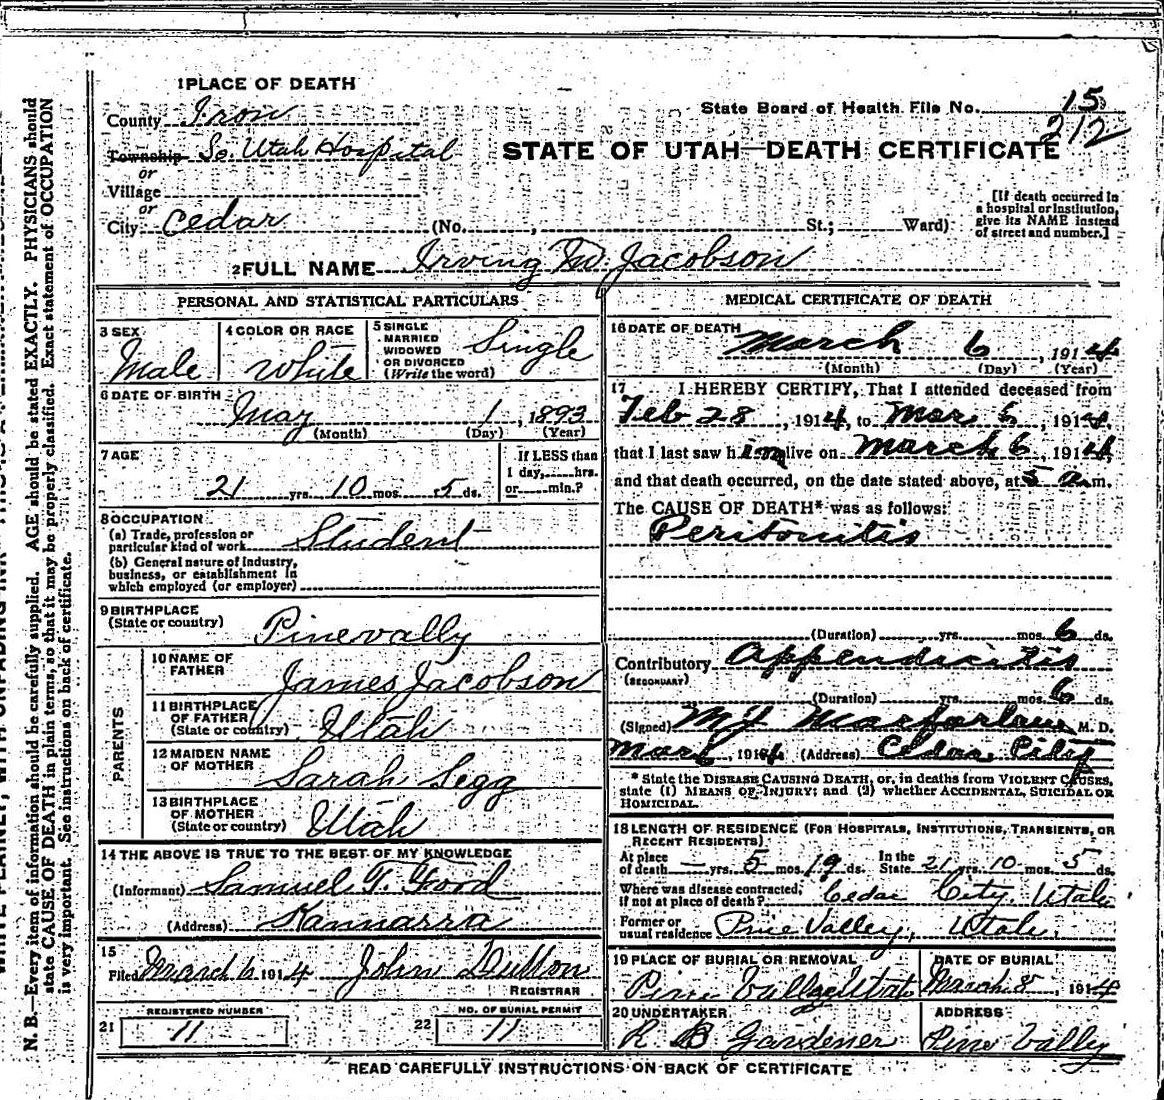 1 PLACE OF DEATH
County Iron
State Board of Health File No. 15
212
Township So. Utah Hospital
or
Village
or
City Cedar (No. , St.; Ward)
STATE OF UTAH—DEATH CERTIFICATE
[If death occurred in
a hospital or institution,
give its NAME instead
of street and number.]
2 FULL NAME Irving W. Jacobson
PERSONAL AND STATISTICAL PARTICULARS
3 SEX
Male
4 COLOR OR RACE
White
5 SINGLE
MARRIED
WIDOWED
OR DIVORCED
(Write the word)
Single
6 DATE OF BIRTH
May 1, 1893
(Month) (Day) (Year)
7 AGE
21 yrs. 10 mos. 5 ds.
If LESS than
1 day, hrs.
or min.?
8 OCCUPATION
(a) Trade, profession or
particular kind of work Student
(b) General nature of Industry,
business, or establishment in
which employed (or employer)
9 BIRTHPLACE
(State or country) Pinevally
PARENTS
10 NAME OF
FATHER James Jacobson
11 BIRTHPLACE
OF FATHER
(State or country) Utah
12 MAIDEN NAME
OF MOTHER Sarah Legg
13 BIRTHPLACE
OF MOTHER
(State or country) Utah
14 THE ABOVE IS TRUE TO THE BEST OF MY KNOWLEDGE
(Informant) Samuel T. Ford
(Address) Kannarra
15
Filed March 6 1914 John Dutton
REGISTRAR
21 REGISTERED NUMBER
11
22 NO. OF BURIAL PERMIT
11
MEDICAL CERTIFICATE OF DEATH
16 DATE OF DEATH
March 6, 1914
(Month) (Day) (Year)
17 I HEREBY CERTIFY, That I attended deceased from
Feb 28, 1914, to Mar 6, 1914,
that I last saw him alive on March 6, 1914,
and that death occurred, on the date stated above, at 5 a.m.
The CAUSE OF DEATH* was as follows:
Peritonitis
(Duration) yrs. mos. 6 ds.
Contributory Appendicitis
(SECONDARY)
(Duration) yrs. mos. 6 ds.
(Signed) M J Macfarlane M. D.
Mar 6, 1914 (Address) Cedar City
* State the DISEASE CAUSING DEATH, or, in deaths from VIOLENT CAUSES,
state (1) MEANS OF INJURY; and (2) whether ACCIDENTAL, SUICIDAL OR
HOMICIDAL.
18 LENGTH OF RESIDENCE (FOR HOSPITALS, INSTITUTIONS, TRANSIENTS, OR
RECENT RESIDENTS)
At place
of death — yrs. 5 mos. 19 ds. In the
State 21 yrs. 10 mos. 5 ds.
Where was disease contracted,
if not at place of death? Cedar City, Utah
Former or
usual residence Pine Valley, Utah.
19 PLACE OF BURIAL OR REMOVAL
Pine Valley Utah
DATE OF BURIAL
March 8, 1914
20 UNDERTAKER
R. B Gardener
ADDRESS
Pine Valley
READ CAREFULLY INSTRUCTIONS ON BACK OF CERTIFICATE
N. B.—Every item of information should be carefully supplied. AGE should be stated EXACTLY. PHYSICIANS should
state CAUSE OF DEATH in plain terms, so that it may be properly classified. Exact statement of OCCUPATION
is very important. See instructions on back of certificate.